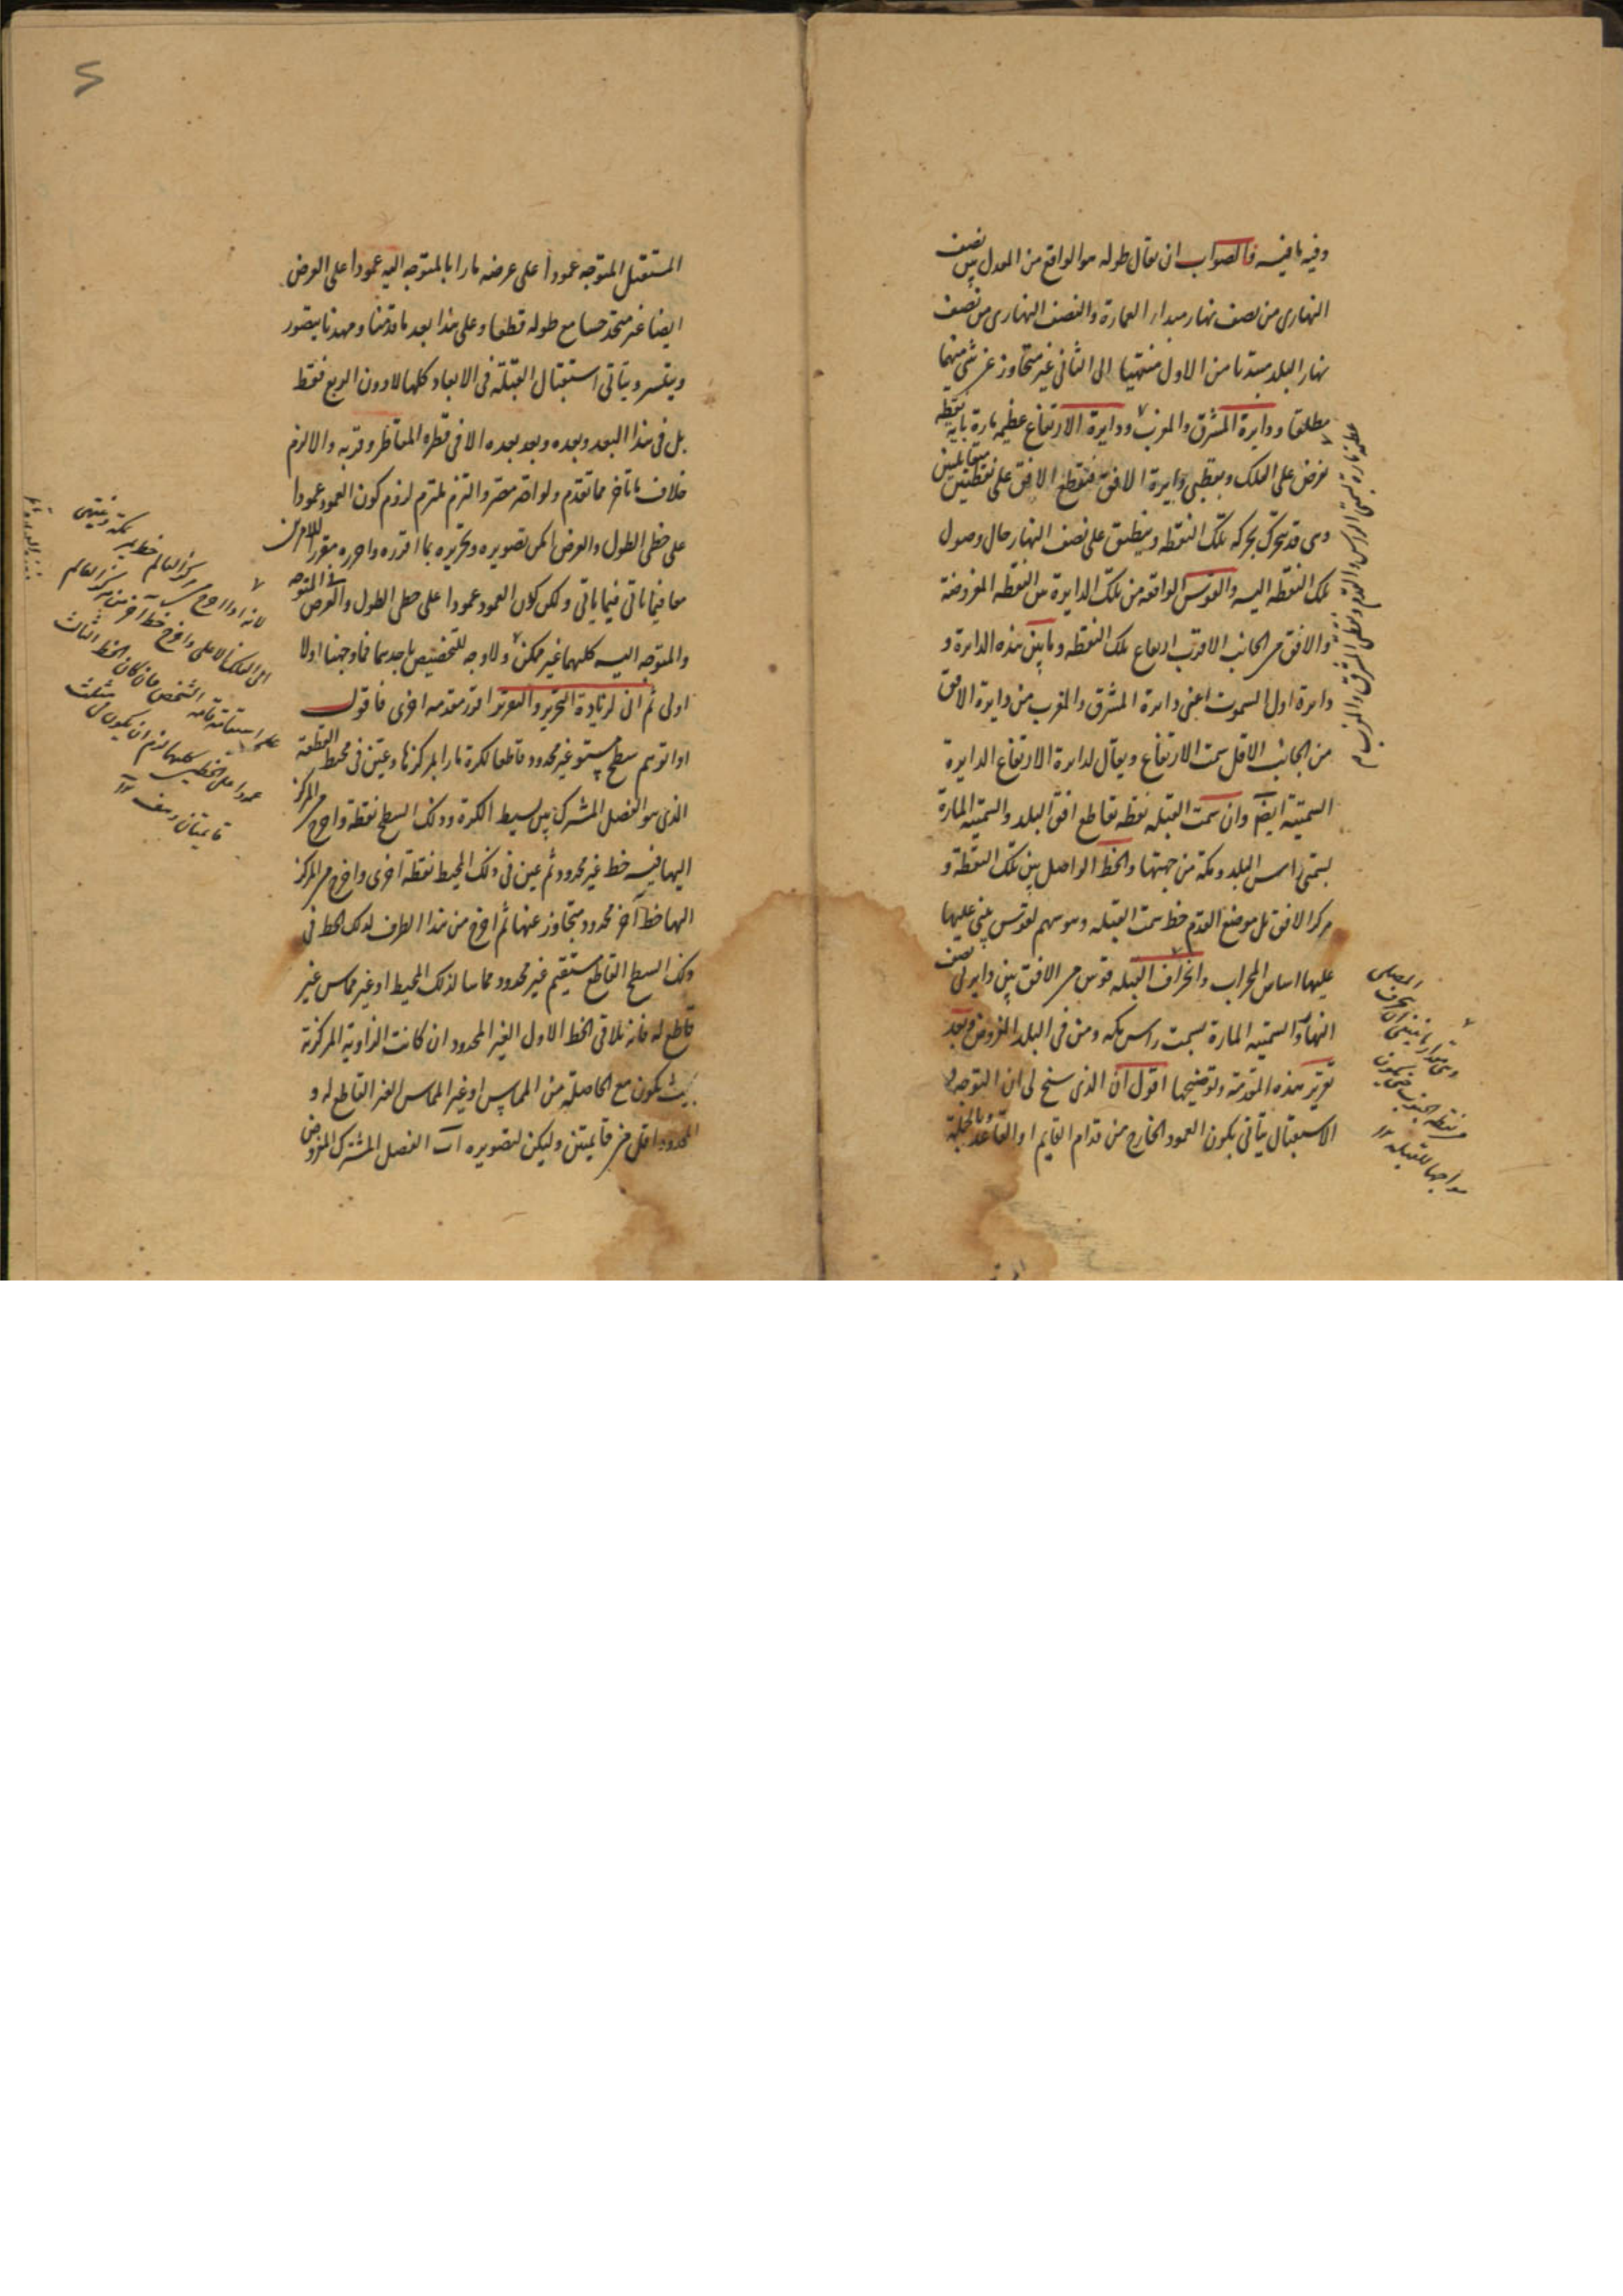 وفيه ما فيه فالصواب ان يقال طوله هو الواقع من المعدل بين نصف
النهارى من نصف نهار مبداء العمارة والنصف النهارى من نصف
نهار البلد مبتدئا من الاول منتهيا الى الثانى غير متجاوز عن شئ منهما
مطلقا ودايرة المشرق والمغرب ودايرة الارتفاع عظيمة مارة باية نقطة
تفرض على الفلك وبقطبى دايرة الافق فتقطع الافق على نقطتين متقابلتين
وهى قد تتحرك بحركة تلك النقطة وينطبق على نصف النهار حال وصول
تلك النقطة اليه والقوس الواقعة من تلك الدايرة بين النقطة المفروضة
والافق من الجانب الاقرب ارتفاع تلك النقطة وما بين هذه الدايرة و
دايرة اول السموت اعنى دايرة المشرق والمغرب من دايرة الافق
من الجانب الاقل سمت الارتفاع ويقال لدايرة الارتفاع الدايرة
السمتية ايضا وان سمت القبلة نقطة تقاطع افق البلد والسمتية المارة
بسمتى راس البلد ومكة من جهتها والخط الواصل بين تلك النقطة و
مركز الافق بل موضع القدم خط سمت القبلة وهو سهم لقوس يبنى عليها
عليها اساس المحراب وانحراف القبلة قوس من الافق بين دايرتى نصف
النهار والسمتية المارة بسمت راس مكة ومن فى البلد المفروض وبعد
تقرير هذه المقدمة وتوضيحها اقول ان الذى سنح لى ان التوجه و
الاستقبال يتأتى بكون العمود الخارج من قدام القايم او القاعد وبالجملة
عظيمة مارة بسمتى الراس والقدم ونقطتى المشرق والمغرب
المصلى
وهى مقدار ما ينبغى ان ينحرف
من نقطة الجنوب حتى يكون
مواجها للقبلة
المستقبل المتوجه عمودا على عرضه مارا بالمتوجه اليه عمودا على العرض
ايضا غير متحد حسا مع طوله قطعا وعلى هذا بعد ما قدمنا ومهدنا يتصور
ويتيسر ويتأتى استقبال القبلة فى الابعاد كلها لا دون الربع فقط
بل فى هذا البعد وبعده وبعد بعده الا فى قطره المقاطر وقربه والا لزم
خلاف ما تأخر مما تقدم ولو اصر مصر والتزم ملتزم لزوم كون العمود عمودا
على خطى الطول والعرض امكن تصويره وتحريره بما اقرره واحرره مقررا للامرين
معا فيما يأتى فيما يأتى ولكن كون العمود عمودا على خطى الطول والعرض فى المتوجه
والمتوجه اليه كليهما غير ممكن ولا وجه للتخصيص باحدهما فما وجهنا اولا
اولى ثم انى لزيادة التحرير والتقرير اقرر مقدمة اخرى فاقول
اذا توهم سطح مستو غير محدود قاطعا لكرة مارا بمركزها وعين فى محيط القطعة
الذى هو الفصل المشترك بين بسيط الكرة وذلك السطح نقطة واخرج من المركز
اليها فيه خط غير محدود ثم عين فى ذلك المحيط نقطة اخرى واخرج من المركز
اليها خط آخر محدود متجاوز عنها ثم اخرج من هذا الطرف لذلك الخط فى
ذلك السطح القاطع مستقيم غير محدود مماسا لذلك المحيط او غير مماس غير
قاطع له فانه يلاقى الخط الاول الغير المحدود ان كانت الزاوية المركزية
بحيث يكون مع الحاصلة من المماس او غير المماس الغير القاطع له و
المحدود اقل من قايمتين وليكن لتصويره اب الفصل المشترك المفروض
لانه اذا اخرج من مركز العالم خط يمر بمكة وينتهى
الى الفلك الاعلى واخرج خط آخر من مركز العالم
على استقامة قامة الشخص فان كان الخط الثالث
عمودا على الخطين كليهما لزم ان يكون فى مثلث
قايمتان وهف